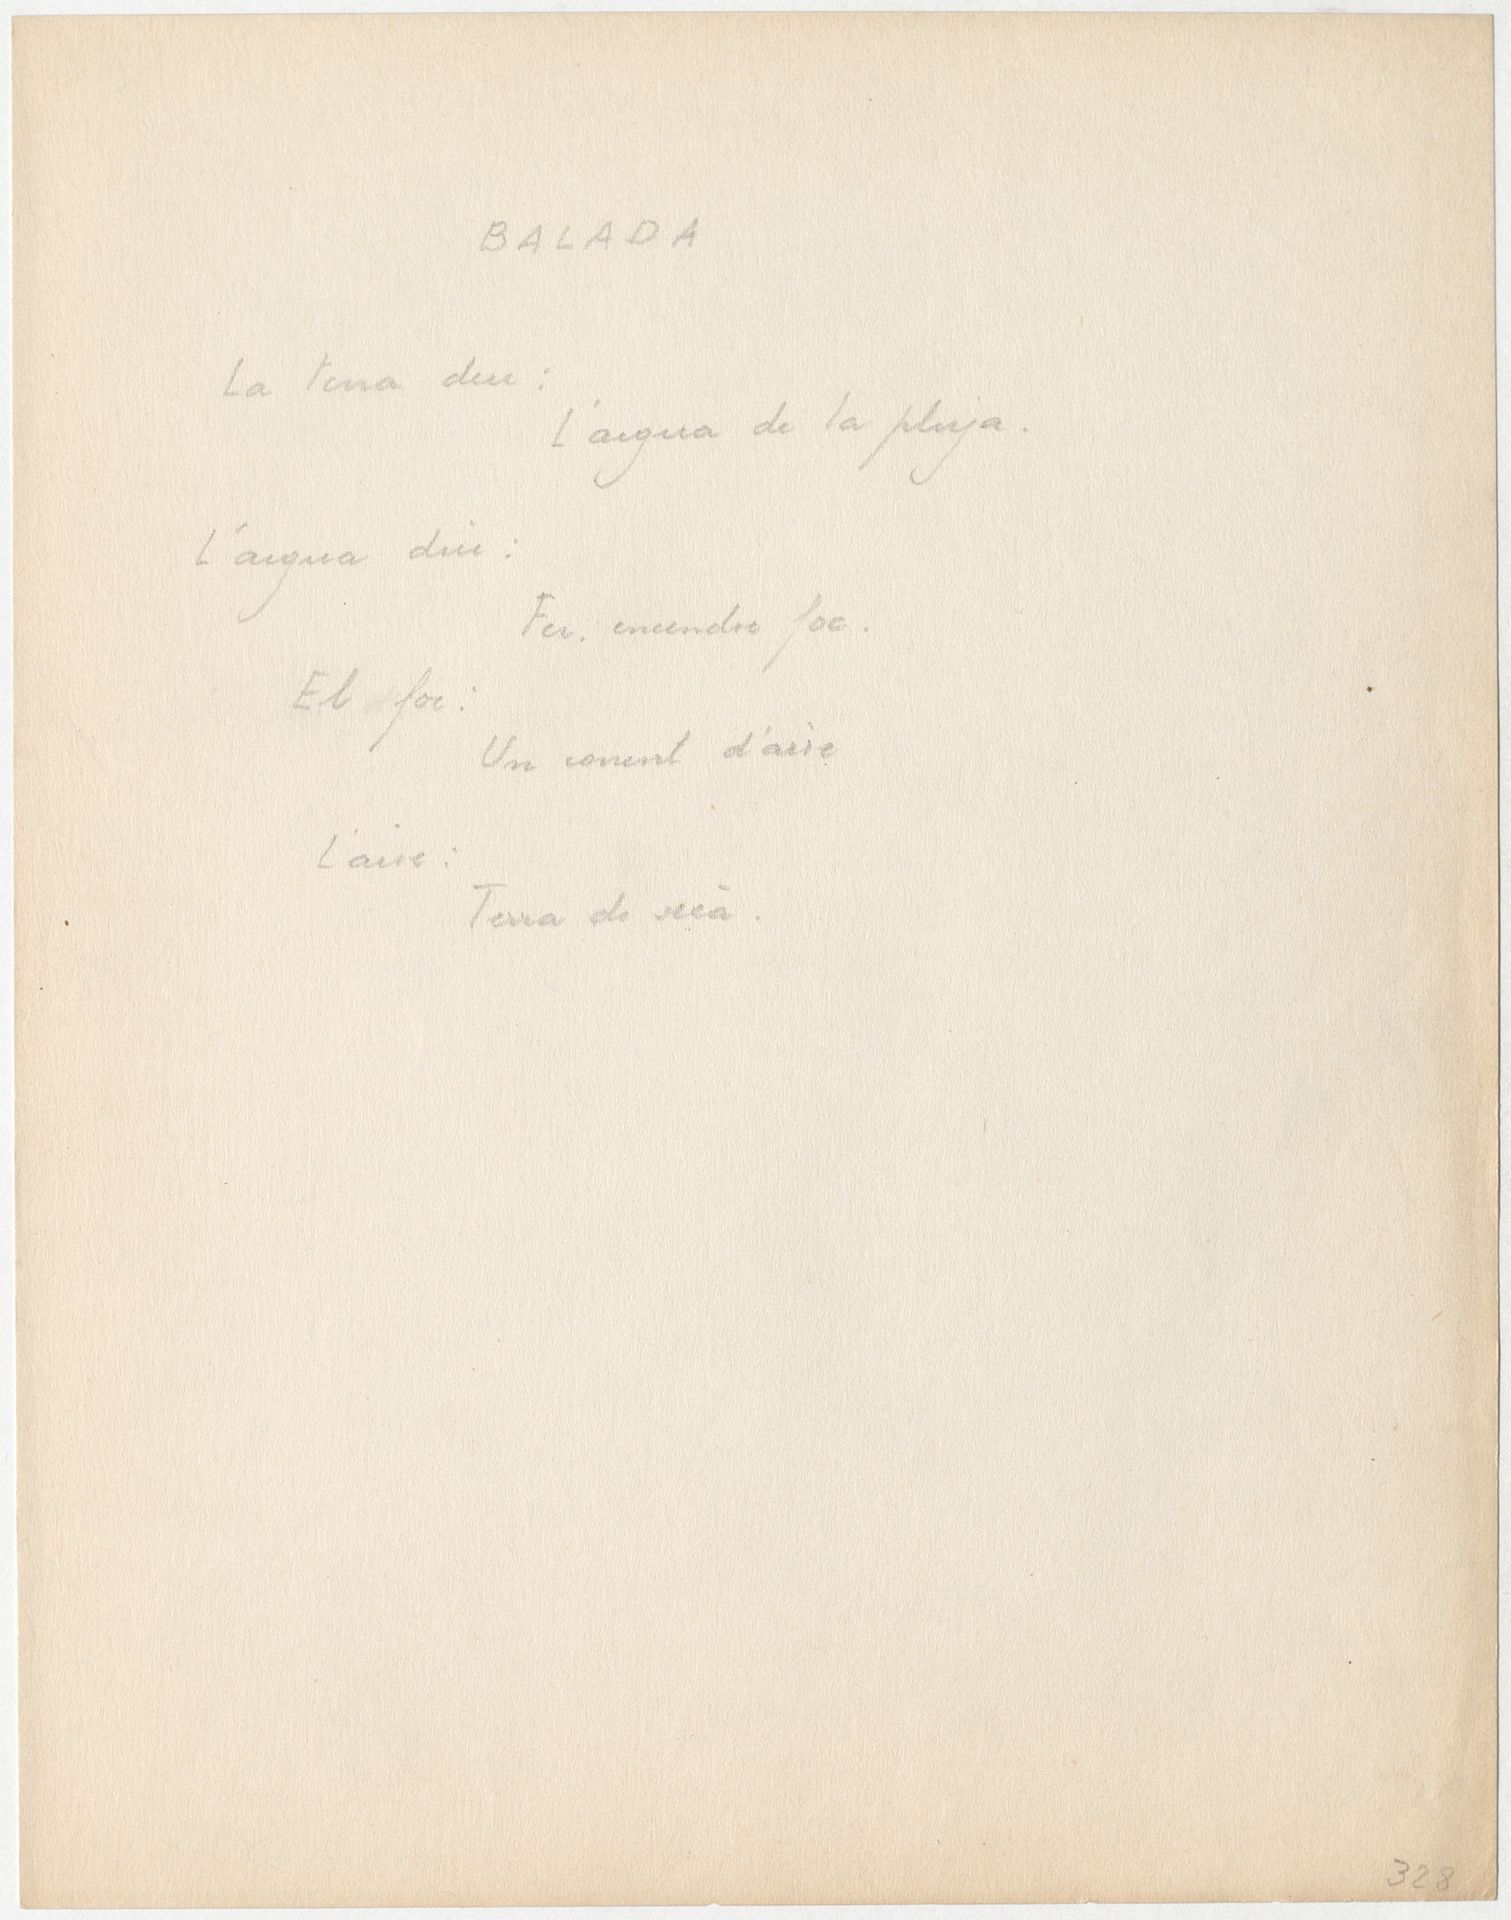 BALADA
La terra diu:
L'aigua de la pluja.
L'aigua diu:
Fer encendre foc.
El foc:
Un corrent d'aire
L'aire:
Terra de secà.
328